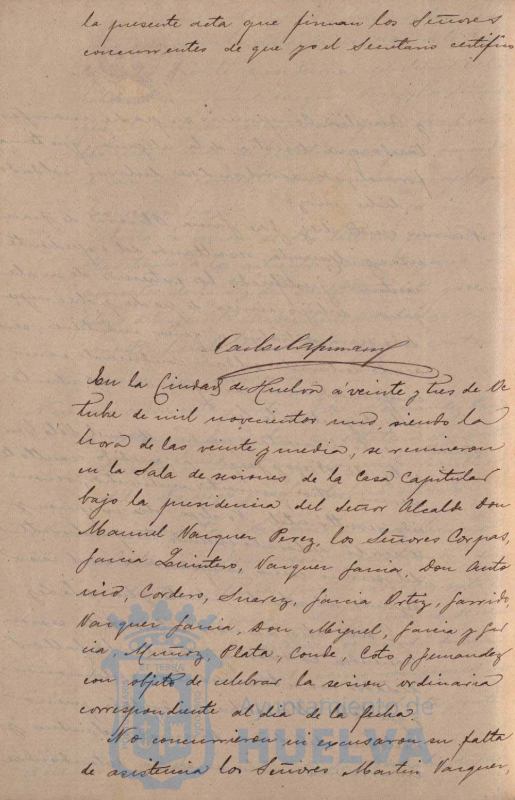 la presente acta que firman los Señores
concurrentes de que yo el Secretario certifico
En la Ciudad de Huelva á veinte y tres de Oc
tubre de mil novecientos uno, siendo la
hora de las veinte y media, se reunieron
en la Sala de sesiones de la casa capitular
bajo la presidencia del Señor Alcalde Don
Manuel Vazquez Perez, los Señores Corpas,
Garcia Quintero, Vazquez Garcia, Don Anto
nio, Cordero, Suarez, Garcia Ortiz, Garrido,
Vazquez Garcia, Don Miguel, Garcia y Gar
cia, Muñoz, Plata, Conde, Coto y Fernandez
con objeto de celebrar la sesion ordinaria
correspondiente al dia de la fecha.
No concurrieron ni excusaron su falta
de asistencia los Señores Martin Vazquez,
Ayuntamiento de
HUELVA